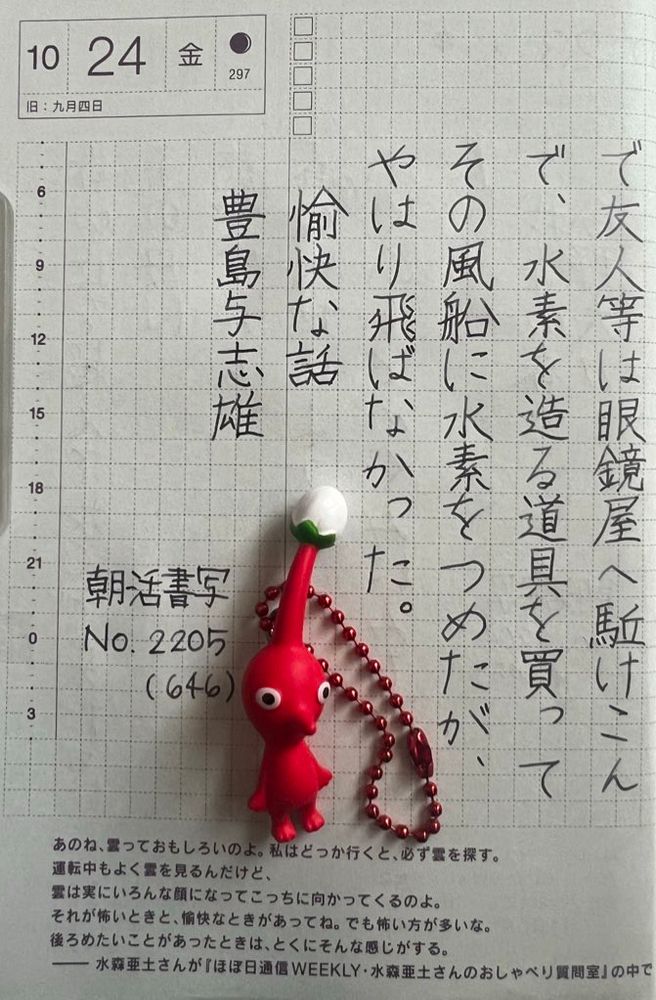 10 24 金
297
旧：九月四日
で友人等は眼鏡屋へ駈けこん
で、水素を造る道具を買って
その風船に水素をつめたが、
やはり飛ばなかった。
愉快な話
豊島与志雄
朝活書写
No. 2205
(646)
6
9
12
15
18
21
0
3
あのね、雲っておもしろいのよ。私はどっか行くと、必ず雲を探す。
運転中もよく雲を見るんだけど、
雲は実にいろんな顔になってこっちに向かってくるのよ。
それが怖いときと、愉快なときがあってね。でも怖い方が多いな。
後ろめたいことがあったときは、とくにそんな感じがする。
―― 水森亜土さんが『ほぼ日通信WEEKLY・水森亜土さんのおしゃべり質問室』の中で